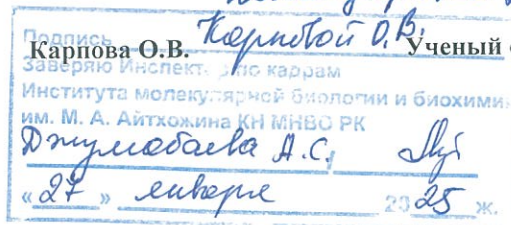 Подпись Карповой О.В.
Карпова О.В. Ученый
Заверяю Инспектор по кадрам
Института молекулярной биологии и биохимии
им. М. А. Айтхожина КН МНВО РК
Джумабаева А.С.
«27» января 2025 ж.